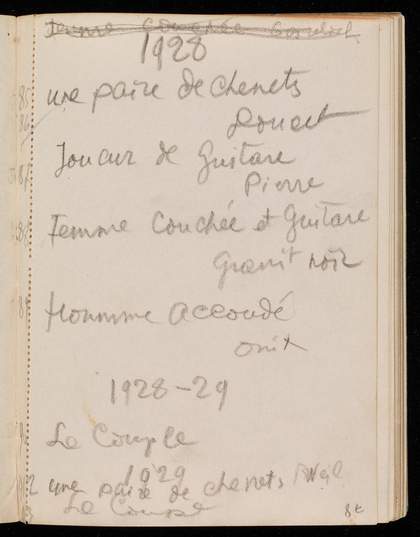 Femme Couchée
1928
85 une paire de chenets
86 Rouart
87 Joueur de Guitare
Pierre
88 Femme Couchée et Guitare
Granit noir
89 Hommme accoudé
onix
1928-29
Le Couple
1929
une paire de chenets Weil
Le Couple